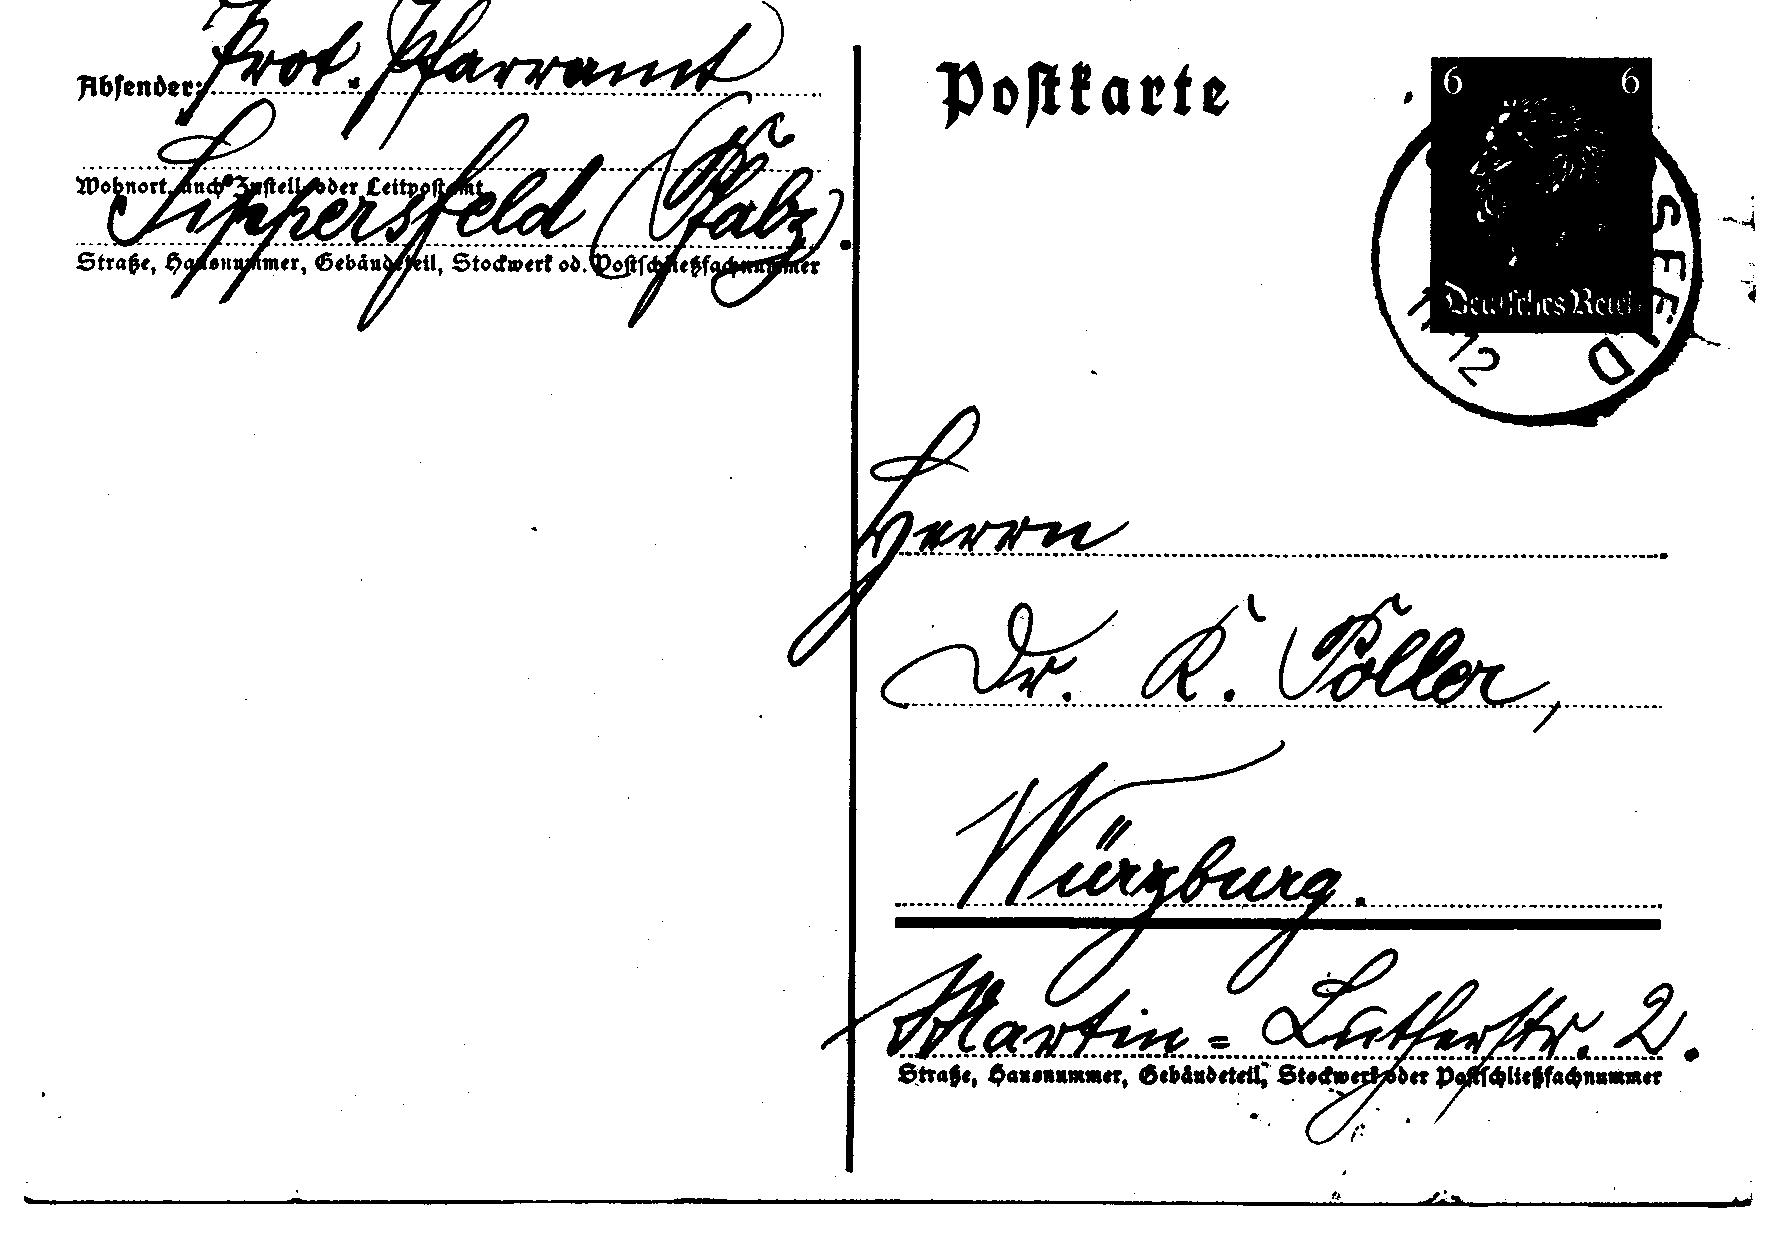 Absender: Prot. Pfarramt
Wohnort, auch Zustell- oder Leitpostamt
Sippersfeld (Pfalz).
Straße, Hausnummer, Gebäudeteil, Stockwerk od. Postschließfachnummer
Postkarte
6 6
Deutsches Reich
SFELD
12
Herrn
Dr. K. Poller,
Würzburg.
Martin=Lutherstr. 2.
Straße, Hausnummer, Gebäudeteil, Stockwerk oder Postschließfachnummer